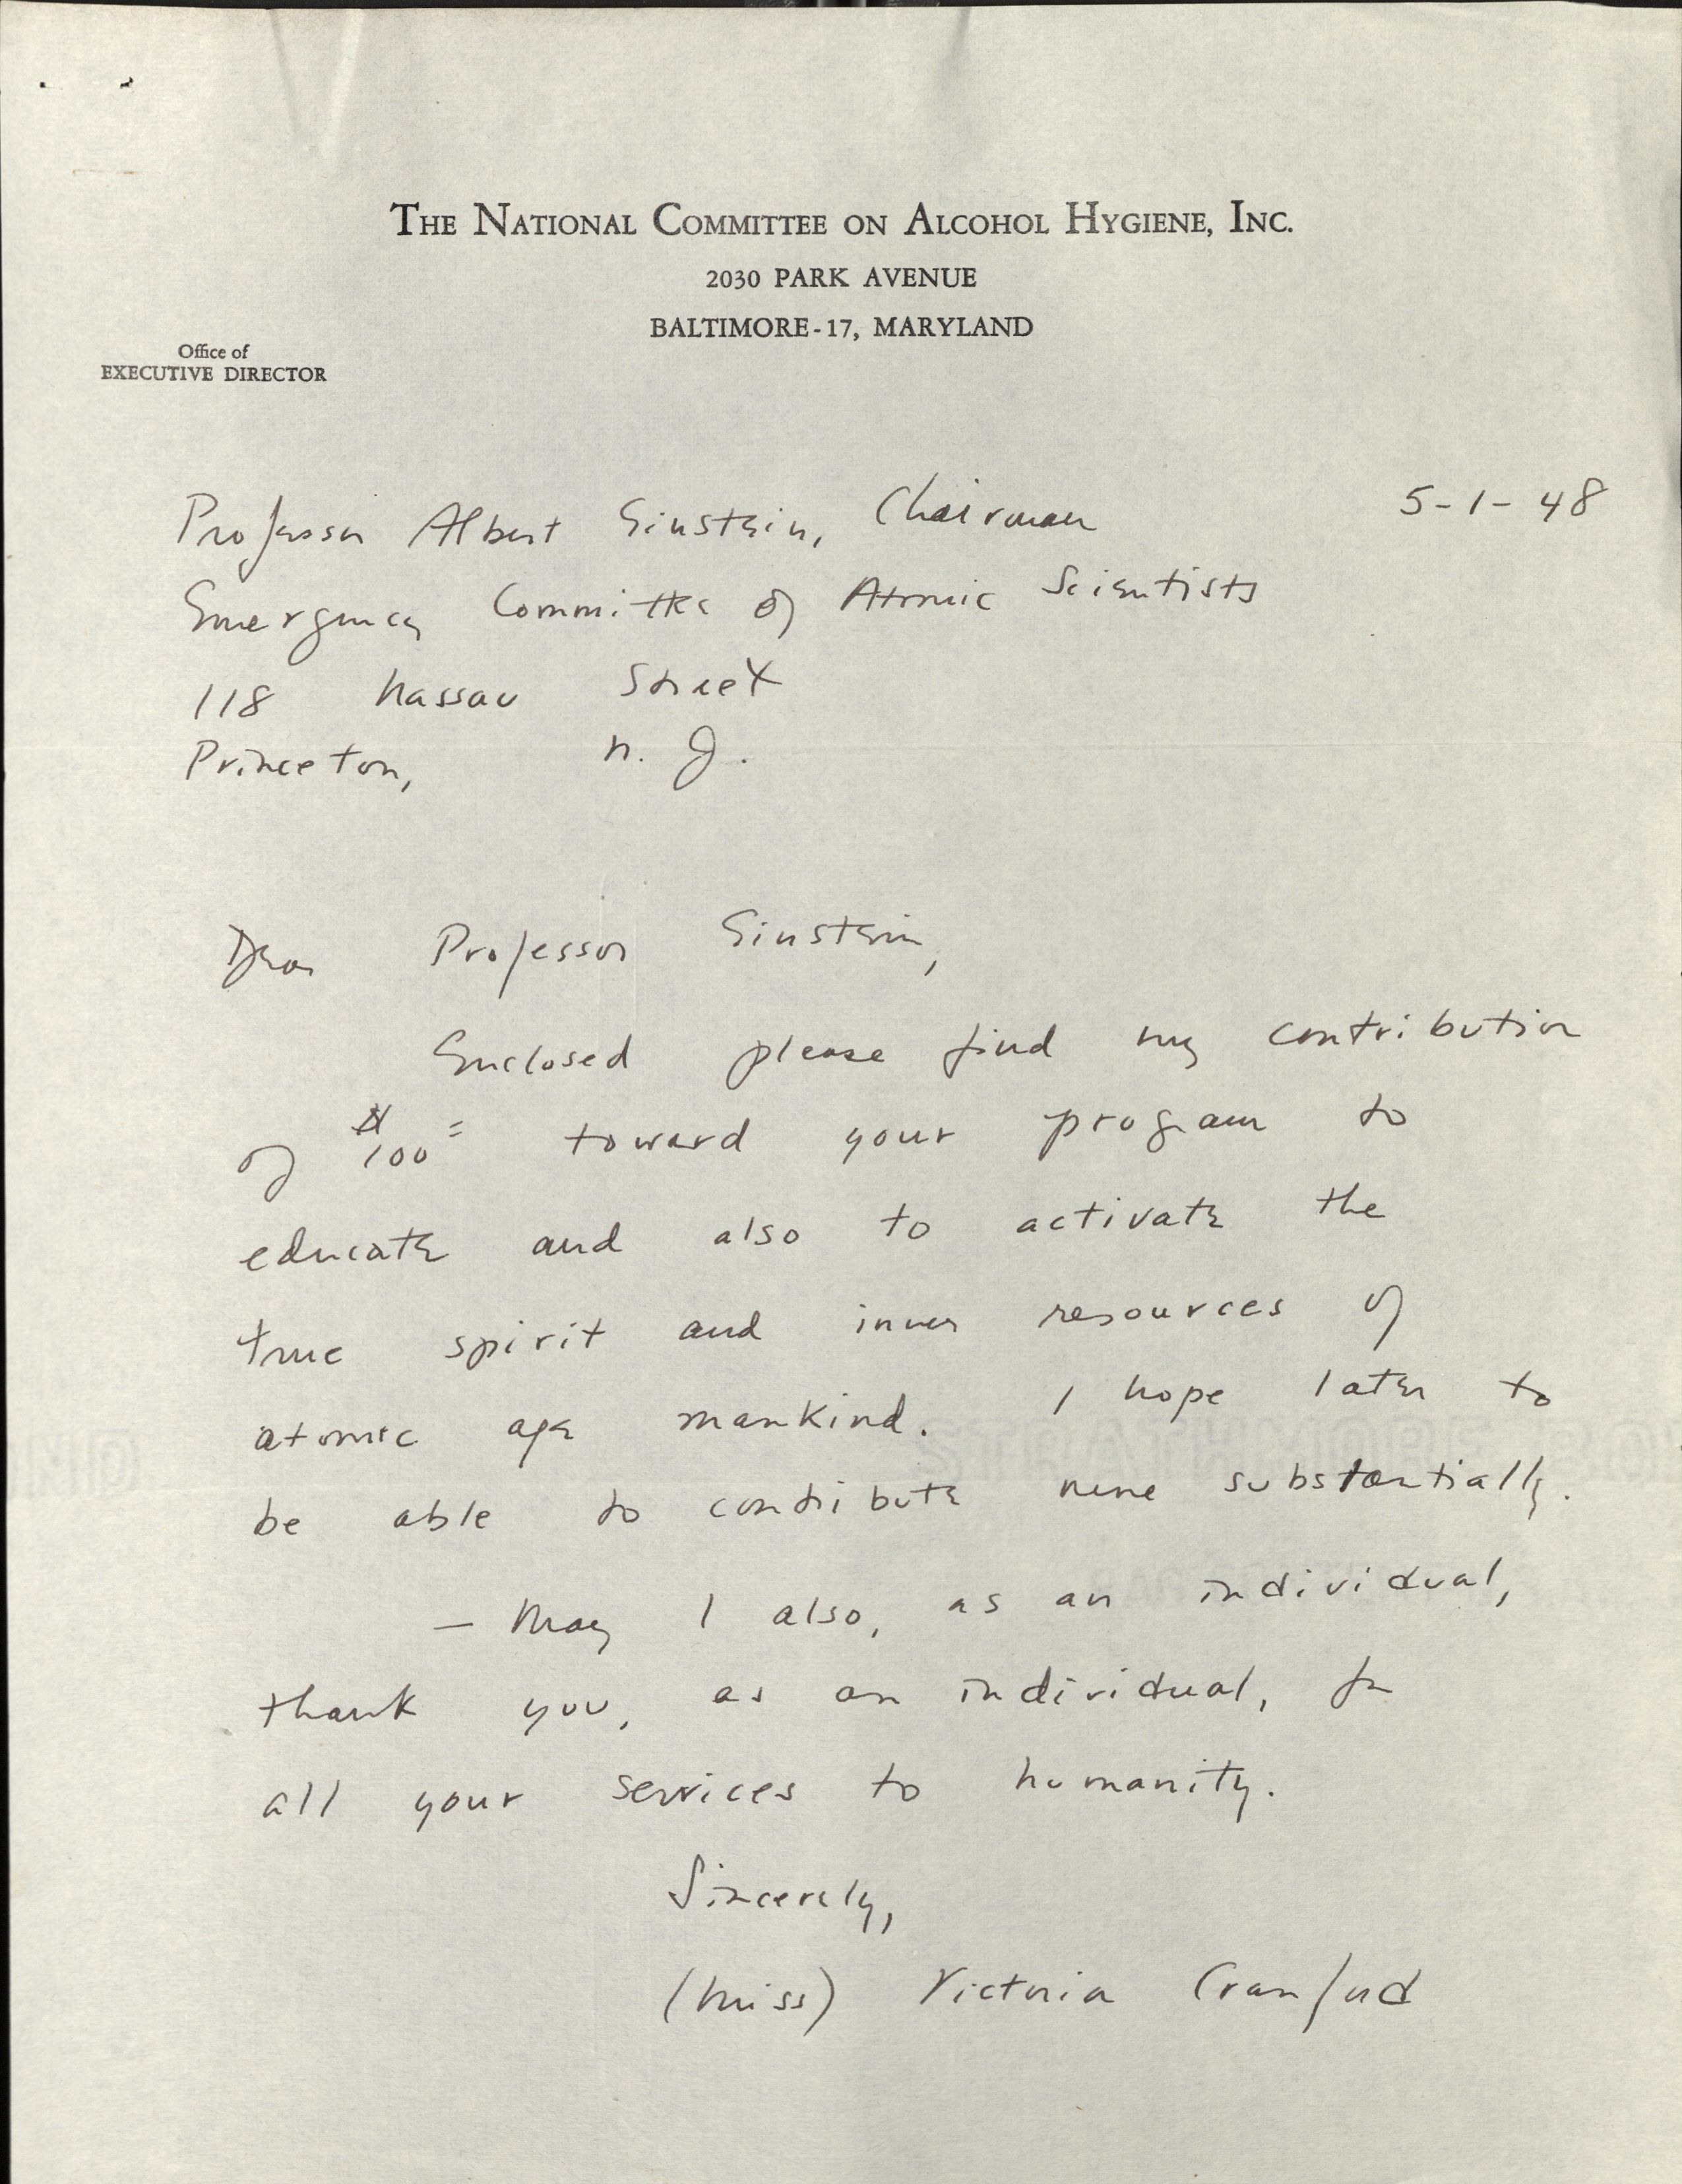 THE NATIONAL COMMITTEE ON ALCOHOL HYGIENE, INC.
2030 PARK AVENUE
BALTIMORE-17, MARYLAND
Office of
EXECUTIVE DIRECTOR
5-1-48
Professor Albert Einstein, Chairman
Emergency Committee of Atomic Scientists
118 Nassau Street
Princeton, N. J.
Dear Professor Einstein,
Enclosed please find my contribution
of $100= toward your program to
educate and also to activate the
true spirit and inner resources of
atomic age mankind. I hope later to
be able to contribute more substantially.
— May I also, as an individual,
thank you, as an individual, for
all your services to humanity.
Sincerely,
(Miss) Victoria Cranford